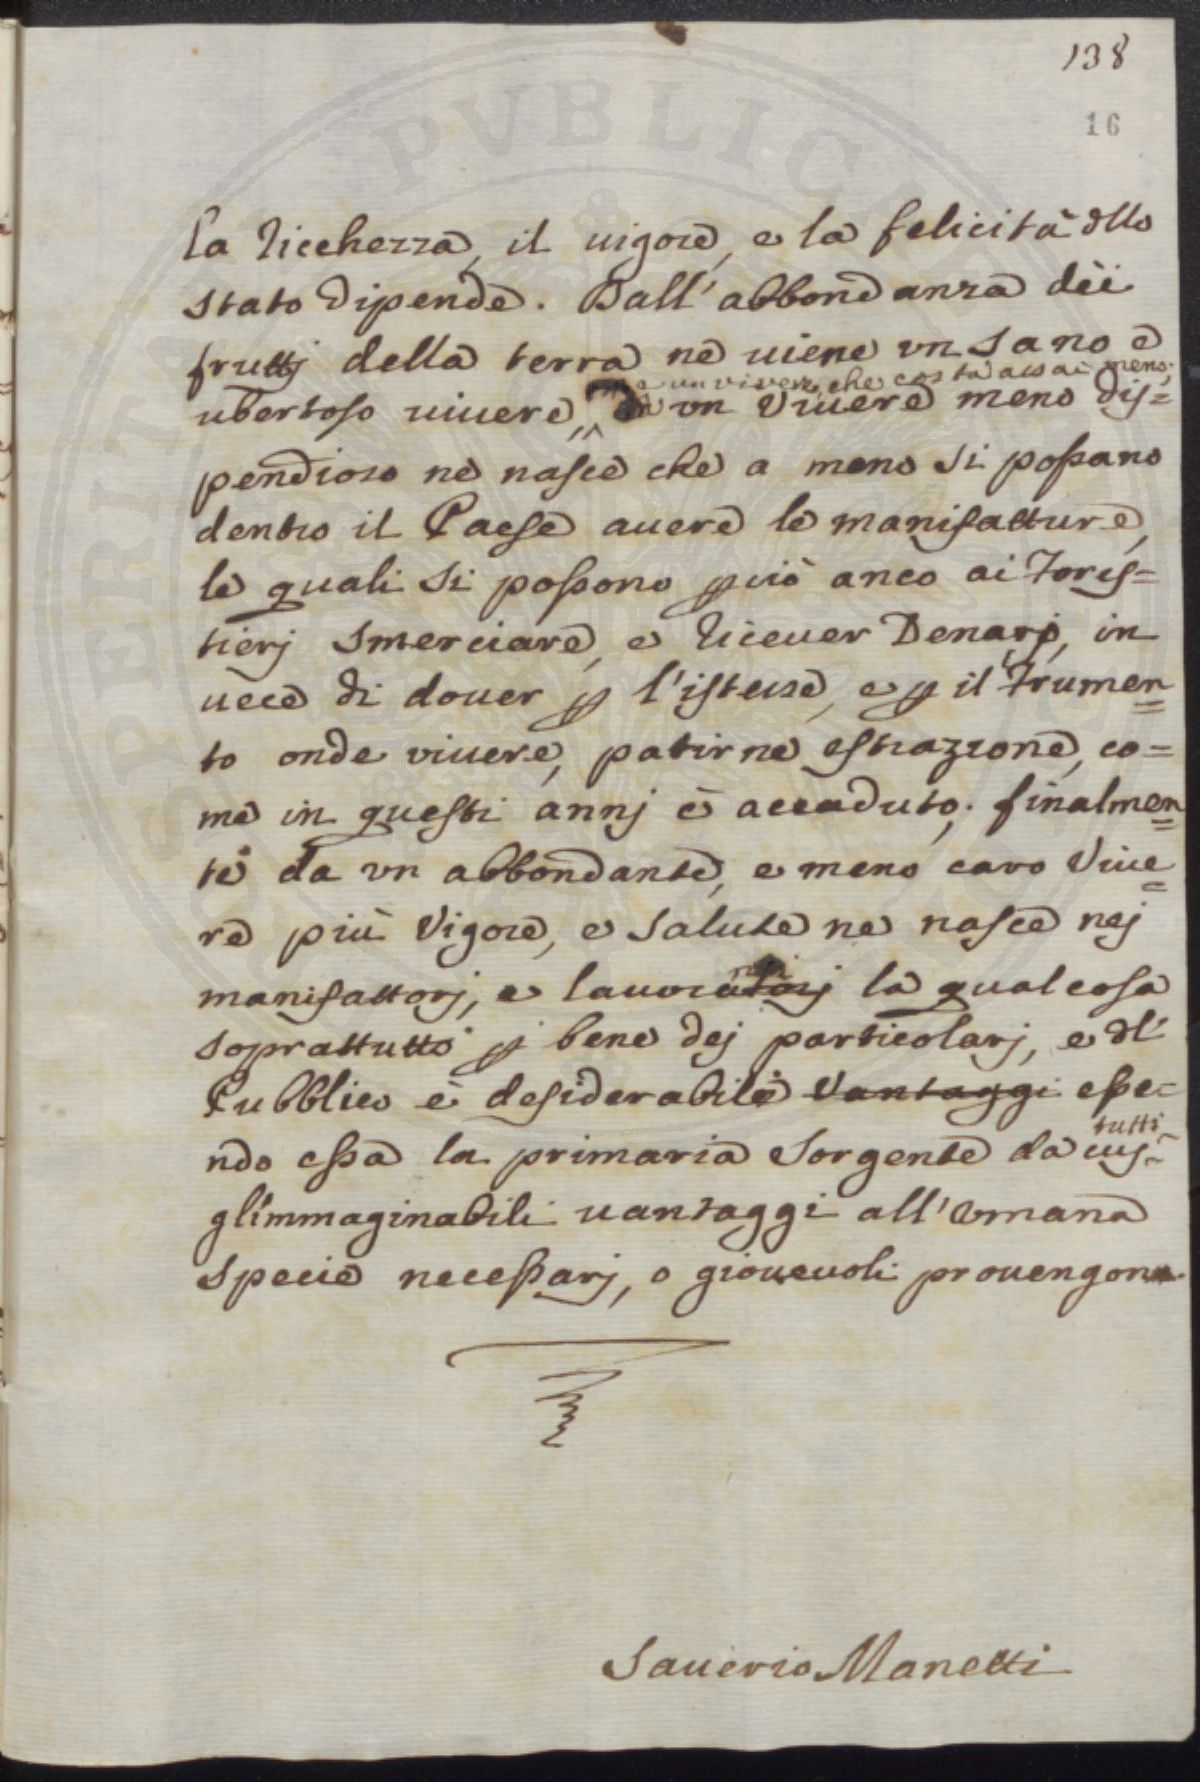 138
16
La ricchezza, il uigore, e la felicità dllo
stato dipende. Dall' abbondanza dei
frutti della terra ne uiene vn sano e
e un vivere che costa assai meno;
ubertoso uiuere, da vn Viuere meno dis=
pendioso ne nasce che a meno si possano
dentro il Paese auere le manifatture,
le quali si possono perciò anco ai Fores=
tierj smerciare, e riceuer Denarj, in
uece di douer per l'istesse, e per il Frumen=
to onde viuere, patirne estrazione, co=
me in questi annj è accaduto; finalmen=
te da vn abbondante, e meno caro Viue=
re più Vigore, e salute ne nasce nej
manifattorj, e lauoratorj la qual cosa
soprattutto per bene dej particolarj, e dl'
Pubblico è desiderabile Vantaggi esse=
tutti
ndo essa la primaria sorgente da cui
gl'immaginabili uantaggi all'vmana
specie necessarj, o gioueuoli prouengono.
Sauerio Manetti
PVBLICAE
PERITAT